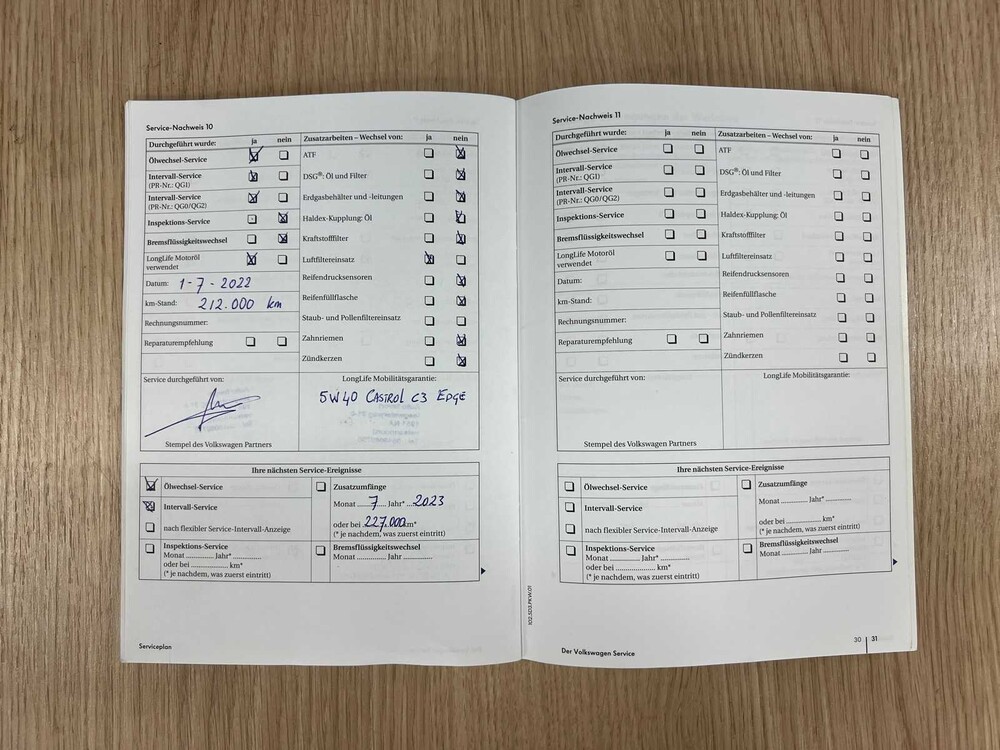 Service-Nachweis 10
Durchgeführt wurde: ja nein
Ölwechsel-Service
Intervall-Service
(PR-Nr.: QG1)
Intervall-Service
(PR-Nr.: QG0/QG2)
Inspektions-Service
Bremsflüssigkeitswechsel
LongLife Motoröl
verwendet
Datum: 1-7-2022
km-Stand: 212.000 km
Rechnungsnummer:
Reparaturempfehlung
Zusatzarbeiten – Wechsel von: ja nein
ATF
DSG®: Öl und Filter
Erdgasbehälter und -leitungen
Haldex-Kupplung: Öl
Kraftstofffilter
Luftfiltereinsatz
Reifendrucksensoren
Reifenfüllflasche
Staub- und Pollenfiltereinsatz
Zahnriemen
Zündkerzen
Service durchgeführt von:
Stempel des Volkswagen Partners
LongLife Mobilitätsgarantie:
5W40 CASTROL C3 EDGE
Ihre nächsten Service-Ereignisse
Ölwechsel-Service
Intervall-Service
nach flexibler Service-Intervall-Anzeige
Inspektions-Service
Monat ............ Jahr* ............
oder bei ............ km*
(* je nachdem, was zuerst eintritt)
Zusatzumfänge
Monat ....7.... Jahr* ...2023
oder bei 227.000 km*
(* je nachdem, was zuerst eintritt)
Bremsflüssigkeitswechsel
Monat ............ Jahr ............
Serviceplan
Service-Nachweis 11
Durchgeführt wurde: ja nein
Ölwechsel-Service
Intervall-Service
(PR-Nr.: QG1)
Intervall-Service
(PR-Nr.: QG0/QG2)
Inspektions-Service
Bremsflüssigkeitswechsel
LongLife Motoröl
verwendet
Datum:
km-Stand:
Rechnungsnummer:
Reparaturempfehlung
Zusatzarbeiten – Wechsel von: ja nein
ATF
DSG®: Öl und Filter
Erdgasbehälter und -leitungen
Haldex-Kupplung: Öl
Kraftstofffilter
Luftfiltereinsatz
Reifendrucksensoren
Reifenfüllflasche
Staub- und Pollenfiltereinsatz
Zahnriemen
Zündkerzen
Service durchgeführt von:
Stempel des Volkswagen Partners
LongLife Mobilitätsgarantie:
Ihre nächsten Service-Ereignisse
Ölwechsel-Service
Intervall-Service
nach flexibler Service-Intervall-Anzeige
Inspektions-Service
Monat ............ Jahr* ............
oder bei ............ km*
(* je nachdem, was zuerst eintritt)
Zusatzumfänge
Monat ............ Jahr* ............
oder bei ............ km*
(* je nachdem, was zuerst eintritt)
Bremsflüssigkeitswechsel
Monat ............ Jahr ............
102.5D3.PKW.01
Der Volkswagen Service
30 | 31